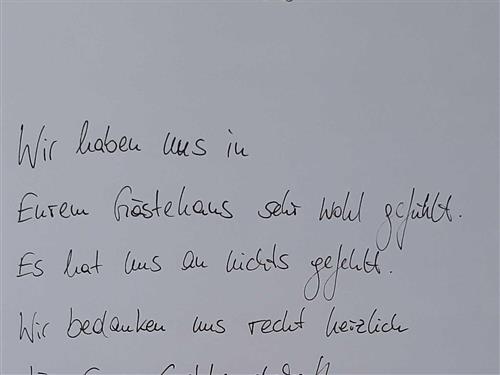 Wir haben uns in
Eurem Gästehaus sehr wohl gefühlt.
Es hat uns an nichts gefehlt.
Wir bedanken uns recht herzlich